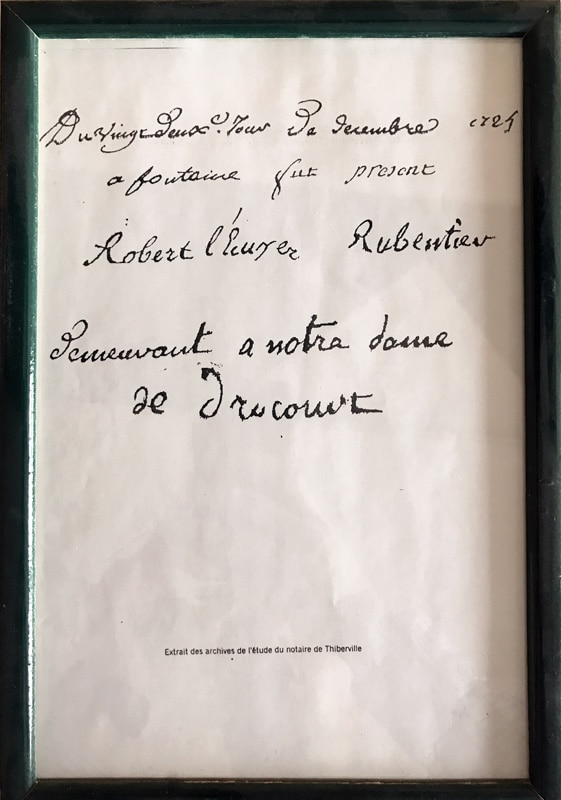 Du vingt deuxe. Jour De decembre 1725
a fontaine fut present
Robert l'Écuyer Rubentier
Demeuvant a notre dame
de Drucourt
Extrait des archives de l'étude du notaire de Thiberville